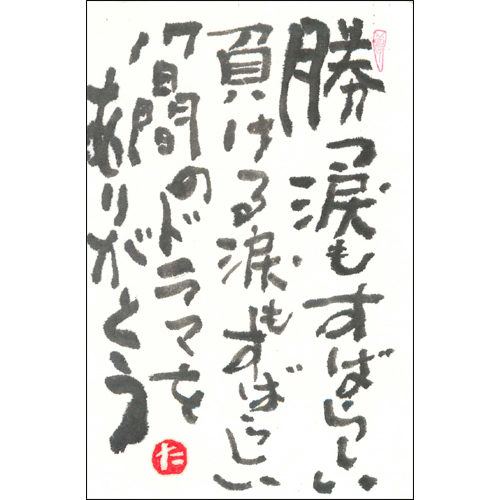 勝つ涙もすばらしい
負ける涙もすばらしい
人間のドラマを
ありがとう
た